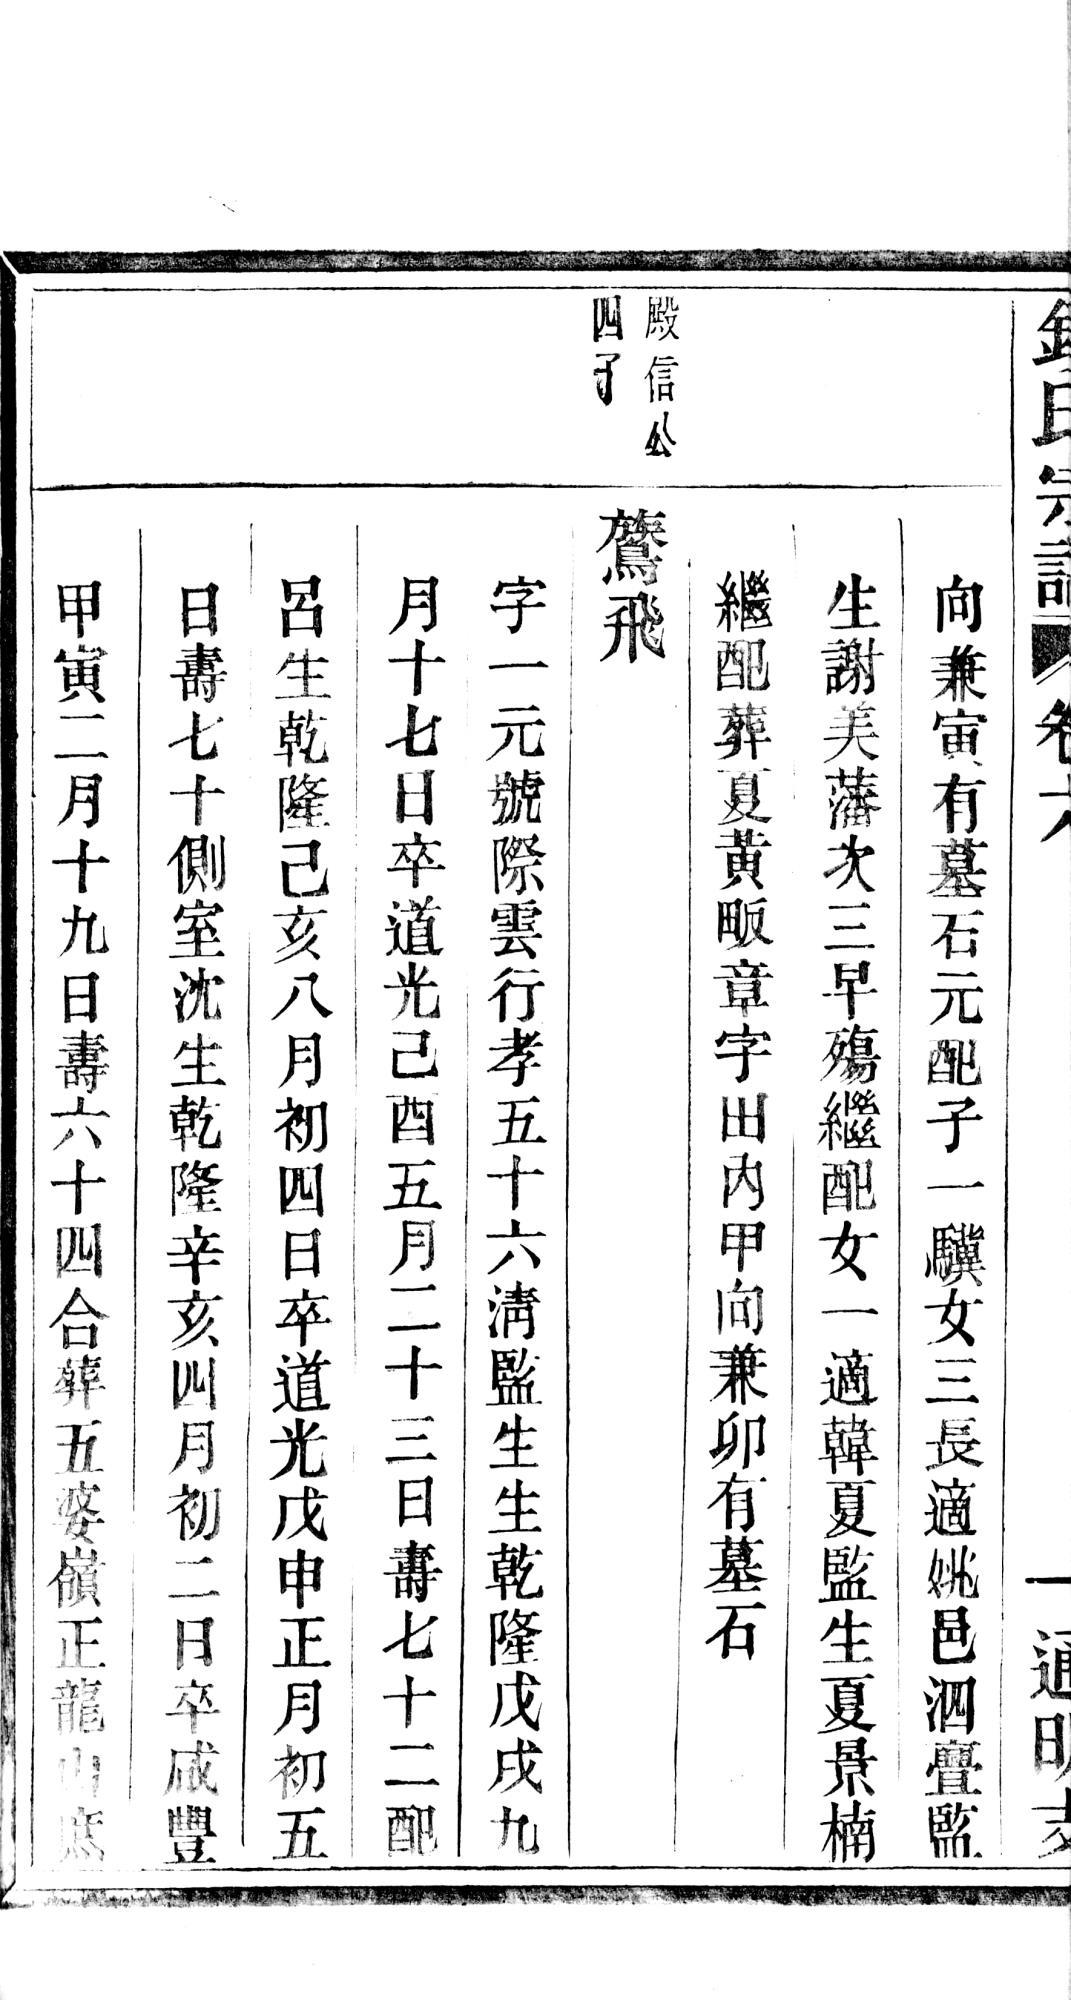 氏宗譜 卷六 一 通明支
向兼寅有墓石元配子一驥女三長適姚邑泗疊監
生謝美藩次三早殤繼配女一適韓夏監生夏景楠
繼配葬夏黃畈章字出內甲向兼卯有墓石
殿信公
四子
鷟飛
字一元號際雲行孝五十六淸監生生乾隆戊戌九
月十七日卒道光己酉五月二十三日壽七十二配
呂生乾隆己亥八月初四日卒道光戊申正月初五
日壽七十側室沈生乾隆辛亥四月初二日卒咸豐
甲寅二月十九日壽六十四合葬五婆嶺正龍山庶